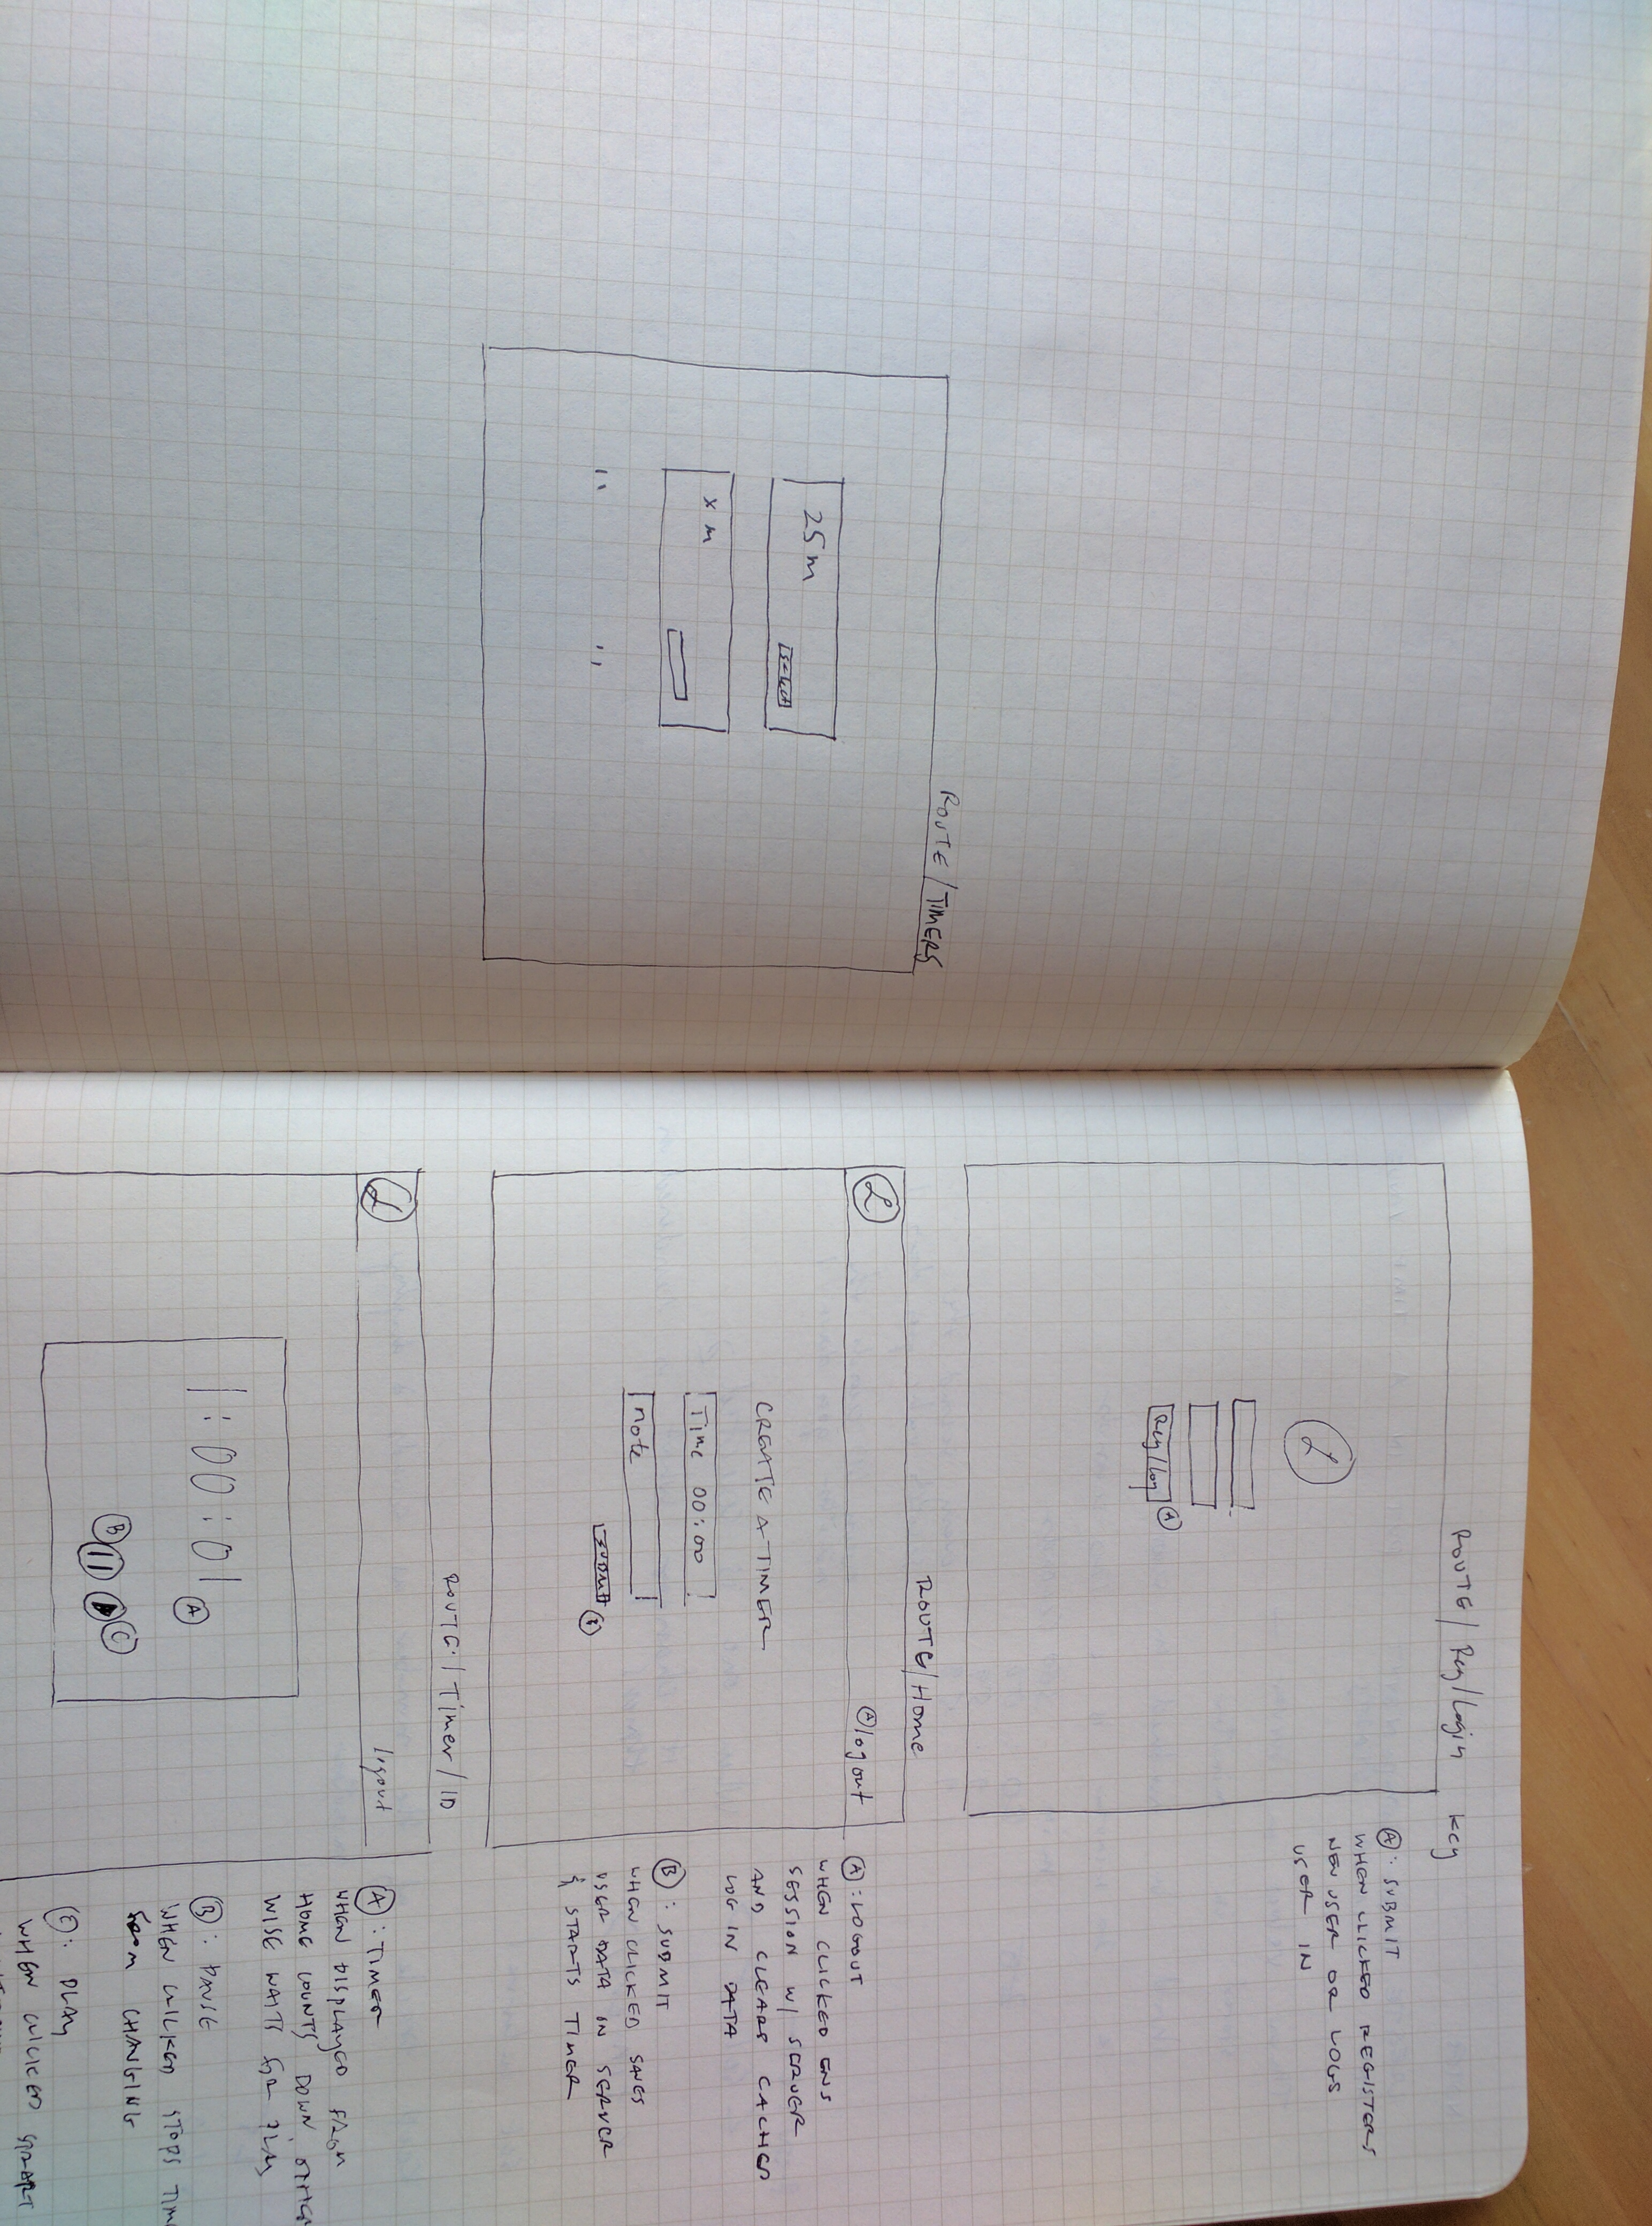 ROUTE/TIMERS
25m
select
x m
" "
ROUTE/Reg/Login
Key
L
Reg/Log
A
A: SUBMIT
WHEN CLICKED REGISTERS
NEW USER OR LOGS
USER IN
ROUTE/Home
L
A logout
CREATE A TIMER
Time 00:00
note
SUBMIT
A: LOGOUT
WHEN CLICKED ENS
SESSION W/ SERVER
AND CLEARS CACHED
LOG IN DATA
B: SUBMIT
WHEN CLICKED SAVES
USER DATA IN SERVER
& STARTS TIMER
ROUTE:/Timer/ID
L
logout
1:00:01
A
B
C
A: TIMER
WHEN DISPLAYED FROM
HOME COUNTS DOWN
WISE WAITS FOR PLAY
B: PAUSE
WHEN CLICKED STOPS TIM
FROM CHANGING
C: PLAY
WHEN CLICKED START